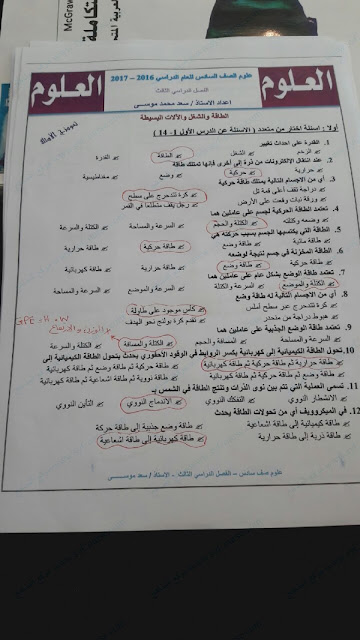 McGraw
العلوم
علوم الصف السادس للعام الدراسي 2016 – 2017
الفصل الدراسي الثالث
إعداد الأستاذ / سعد محمد موسى
العلوم
الطاقة والشغل والآلات البسيطة
أولا : أسئلة اختار من متعدد ( الأسئلة عن الدرس الأول 1- 14 )
1. القدرة على إحداث تغيير
الزخم الشغل الطاقة القدرة
2. عند انتقال الإلكترونات من ذرة إلى أخرى فإنها تمتلك طاقة
حرارية حركية وضع مغناطيسية
3. أي من الأجسام التالية يمتلك طاقة حركية
دراجة تقف أعلى قمة تل كرة تتدحرج على سطح
ورقة نبات وقعت على الأرض رجل يقف
4. تعتمد الطاقة الحركية لجسم على عاملين هما
وضعه وكتلته الكتلة والحجم السرعة والمسافة الكتلة والسرعة
5. الطاقة التي يكتسبها الجسم بسبب حركته هي
طاقة مائية طاقة وضع طاقة حركية طاقة حرارية
6. الطاقة المخزونة في جسم نتيجة لوضعه
طاقة حركية طاقة وضع طاقة حرارية طاقة كهربائية
7. تعتمد طاقة الوضع بشكل عام على عاملين هما
الكتلة والموضع الكتلة والسرعة السرعة والموضع السرعة والمسافة
8. أي من الأجسام التالية له طاقة وضع
كأس موجود على طاولة
هبوط دراجة من منحدر تقدم كرة بولنج نحو الهدف
GPE = H × W
9. تعتمد طاقة الوضع الجذبية على عاملين هما
السرعة والمساحة المسافة والحجم الكتلة والمسافة الكتلة والسرعة
10. تحول الطاقة الكيميائية إلى كهربائية بكسر الروابط في الوقود الأحفوري يحدث بتحول الطاقة الكيميائية إلى
طاقة حرارية ثم طاقة حركية ثم طاقة كهربائية طاقة حركية ثم طاقة وضع ثم طاقة كهربائية
طاقة وضع ثم طاقة حركية ثم طاقة كهربائية طاقة نووية ثم طاقة إشعاعية ثم طاقة كهربائية
11. تسمى العملية التي تتم بين نوى الذرات وتنتج الطاقة في الشمس بـ
الانشطار النووي التفكك النووي الاندماج النووي التأين النووي
12. في الميكروويف أي من تحولات الطاقة يحدث
طاقة كيميائية إلى طاقة إشعاعية طاقة وضع جذبية إلى طاقة حركة
طاقة ذرية إلى طاقة حرارية طاقة كهربائية إلى طاقة إشعاعية
علوم صف سادس – الفصل الدراسي الثالث - الأستاذ / سعد موسى